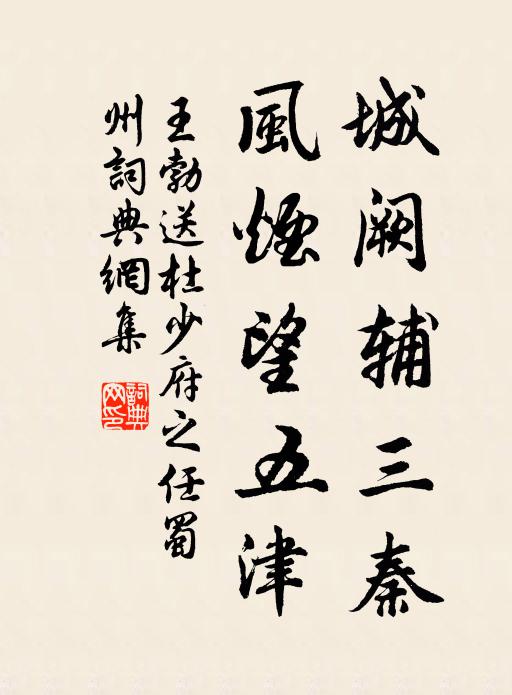 城阙辅三秦
風煙望五津
王勃送杜少府之任蜀
州詞典網集
詞典
网印